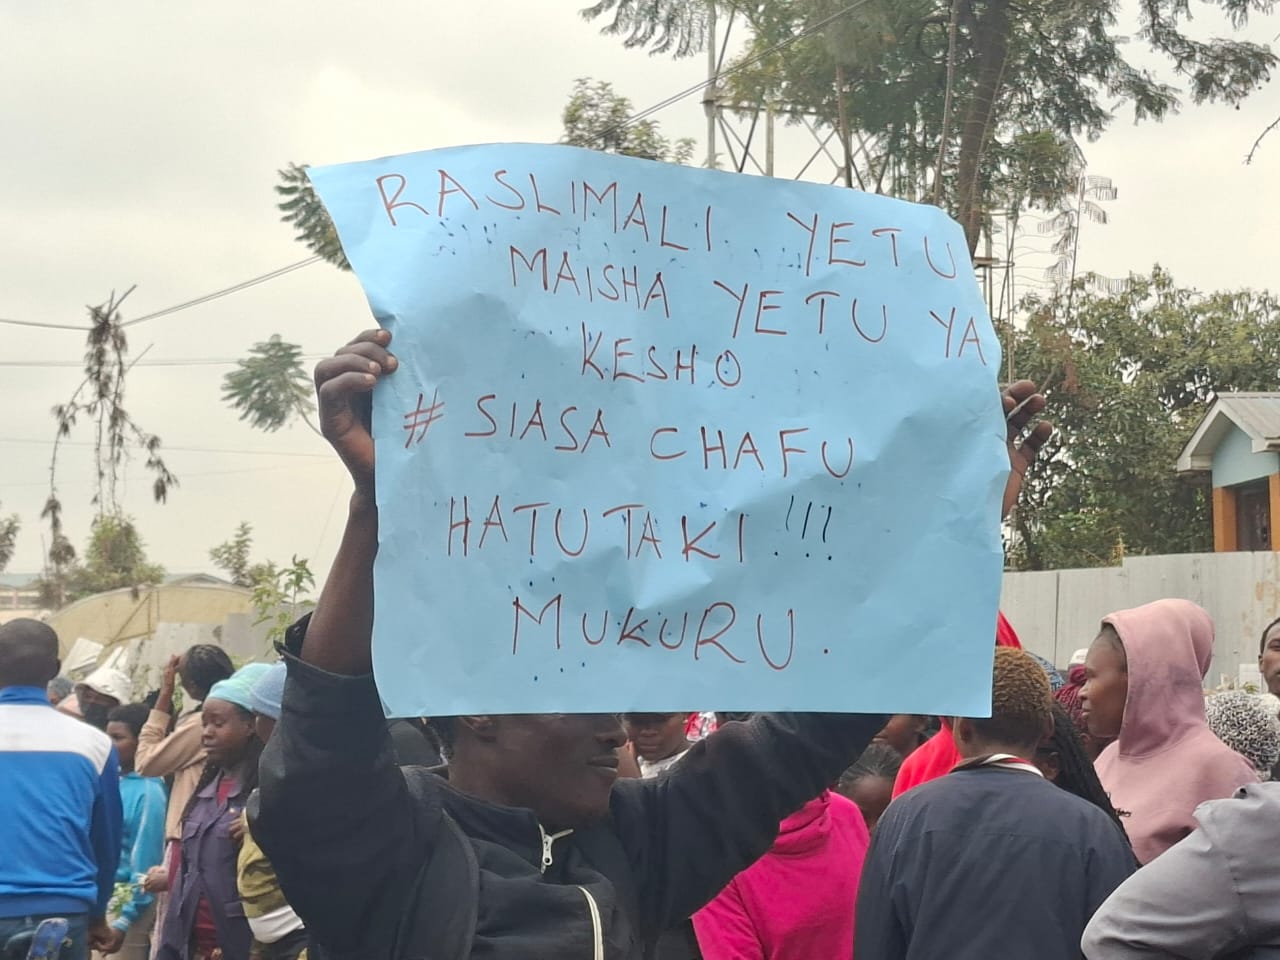 RASLIMALI YETU
MAISHA YETU YA
KESHO
# SIASA CHAFU
HATUTAKI !!!
MUKURU.